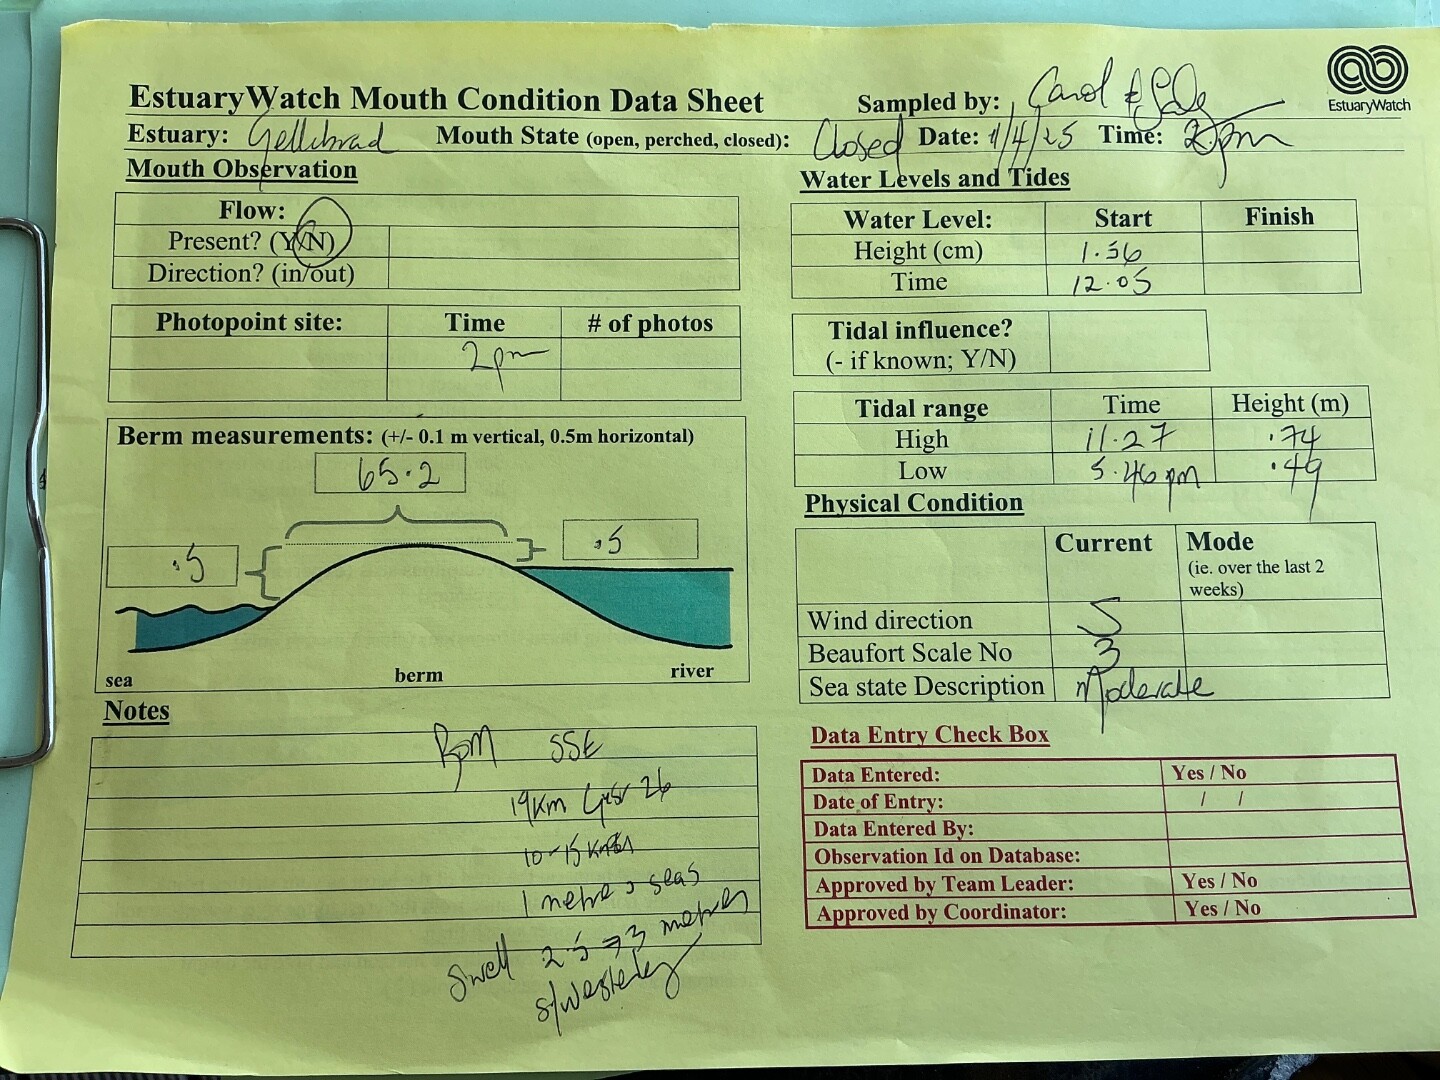 EstuaryWatch
EstuaryWatch Mouth Condition Data Sheet Sampled by: Carol &
Estuary: Gellibrad Mouth State (open, perched, closed): Closed Date: 1/4/25 Time: 2pm
Mouth Observation
Flow:
Present? (Y/N)
Direction? (in/out)
Photopoint site: Time # of photos
2pm
Berm measurements: (+/- 0.1 m vertical, 0.5m horizontal)
65.2
.5
.5
sea berm river
Notes
SSE
19km Gust 26
10-15 knots
1 metre seas
Swell 2.5 → 3 metres
S/Westerley
Water Levels and Tides
Water Level: Start Finish
Height (cm) 1.56
Time 12.05
Tidal influence?
(- if known; Y/N)
Tidal range Time Height (m)
High 11.27 .74
Low 5.46pm .49
Physical Condition
Current Mode
(ie. over the last 2
weeks)
Wind direction S
Beaufort Scale No 3
Sea state Description Moderate
Data Entry Check Box
Data Entered: Yes / No
Date of Entry: / /
Data Entered By:
Observation Id on Database:
Approved by Team Leader: Yes / No
Approved by Coordinator: Yes / No